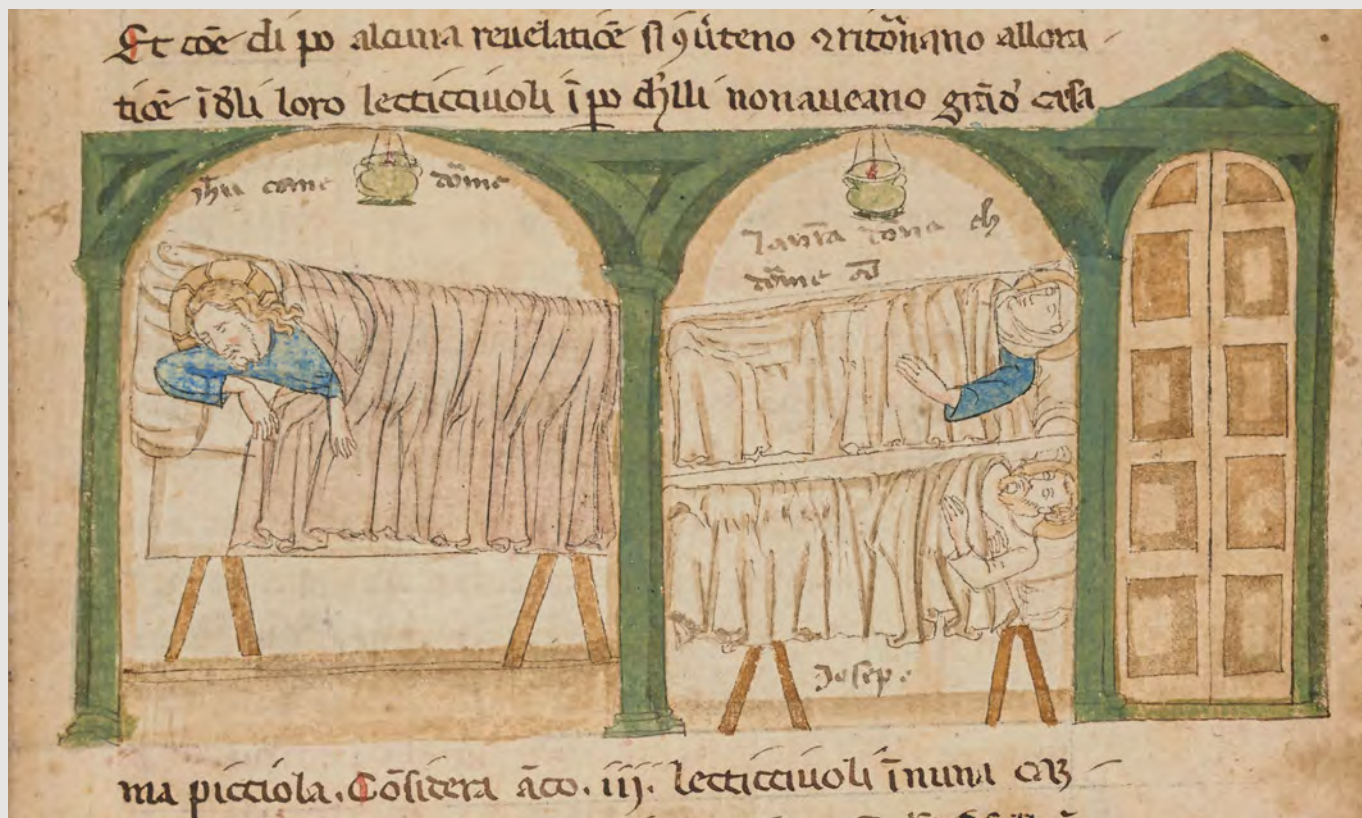 Et cōe di po alcuna reuelatiōe si ꝯ ⁊ritorñano allora
tiōe ī loro lecticciuoli ī po ch̄lli non aueano grād casa
jh̄u come dōme
la nr̄a dona ch
dōme
Josep.
ma picciola. Cōsidera āco. iij. lecticciuoli īnuna